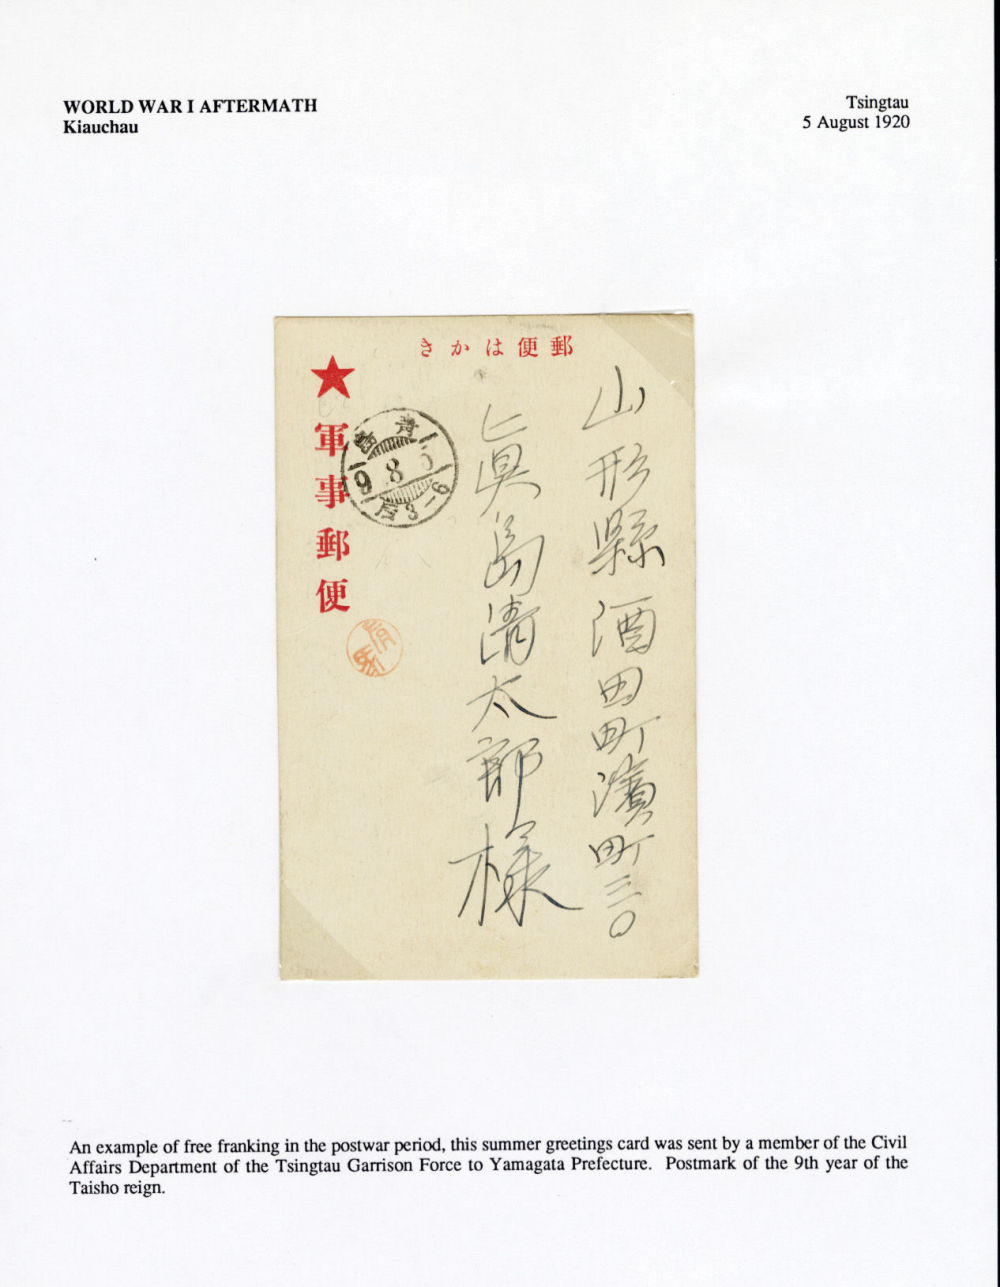 WORLD WAR I AFTERMATH
Kiauchau
Tsingtau
5 August 1920
郵便はかき
軍事郵便
青島
9 8 5
后3-6
山形縣酒田町濱町三〇
眞島清太郎様
An example of free franking in the postwar period, this summer greetings card was sent by a member of the Civil
Affairs Department of the Tsingtau Garrison Force to Yamagata Prefecture. Postmark of the 9th year of the
Taisho reign.